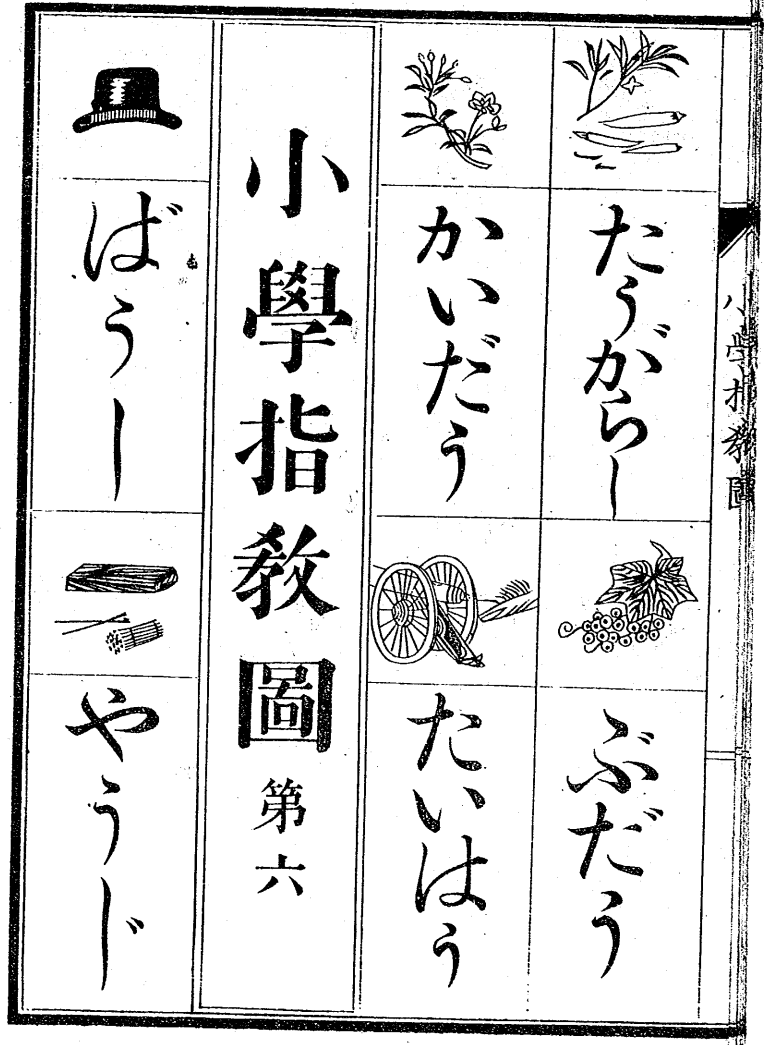 小學指敎圖
たうがらし
ぶだう
かいだう
たいはう
小學指敎圖 第六
ばうし
やうじ